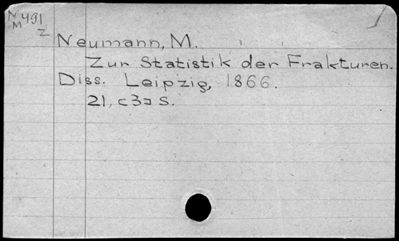 N 491
M
Z
Neumann, M.
Zur Statistik der Frakturen.
Diss. Leipzig, 1866.
21, [3] S.